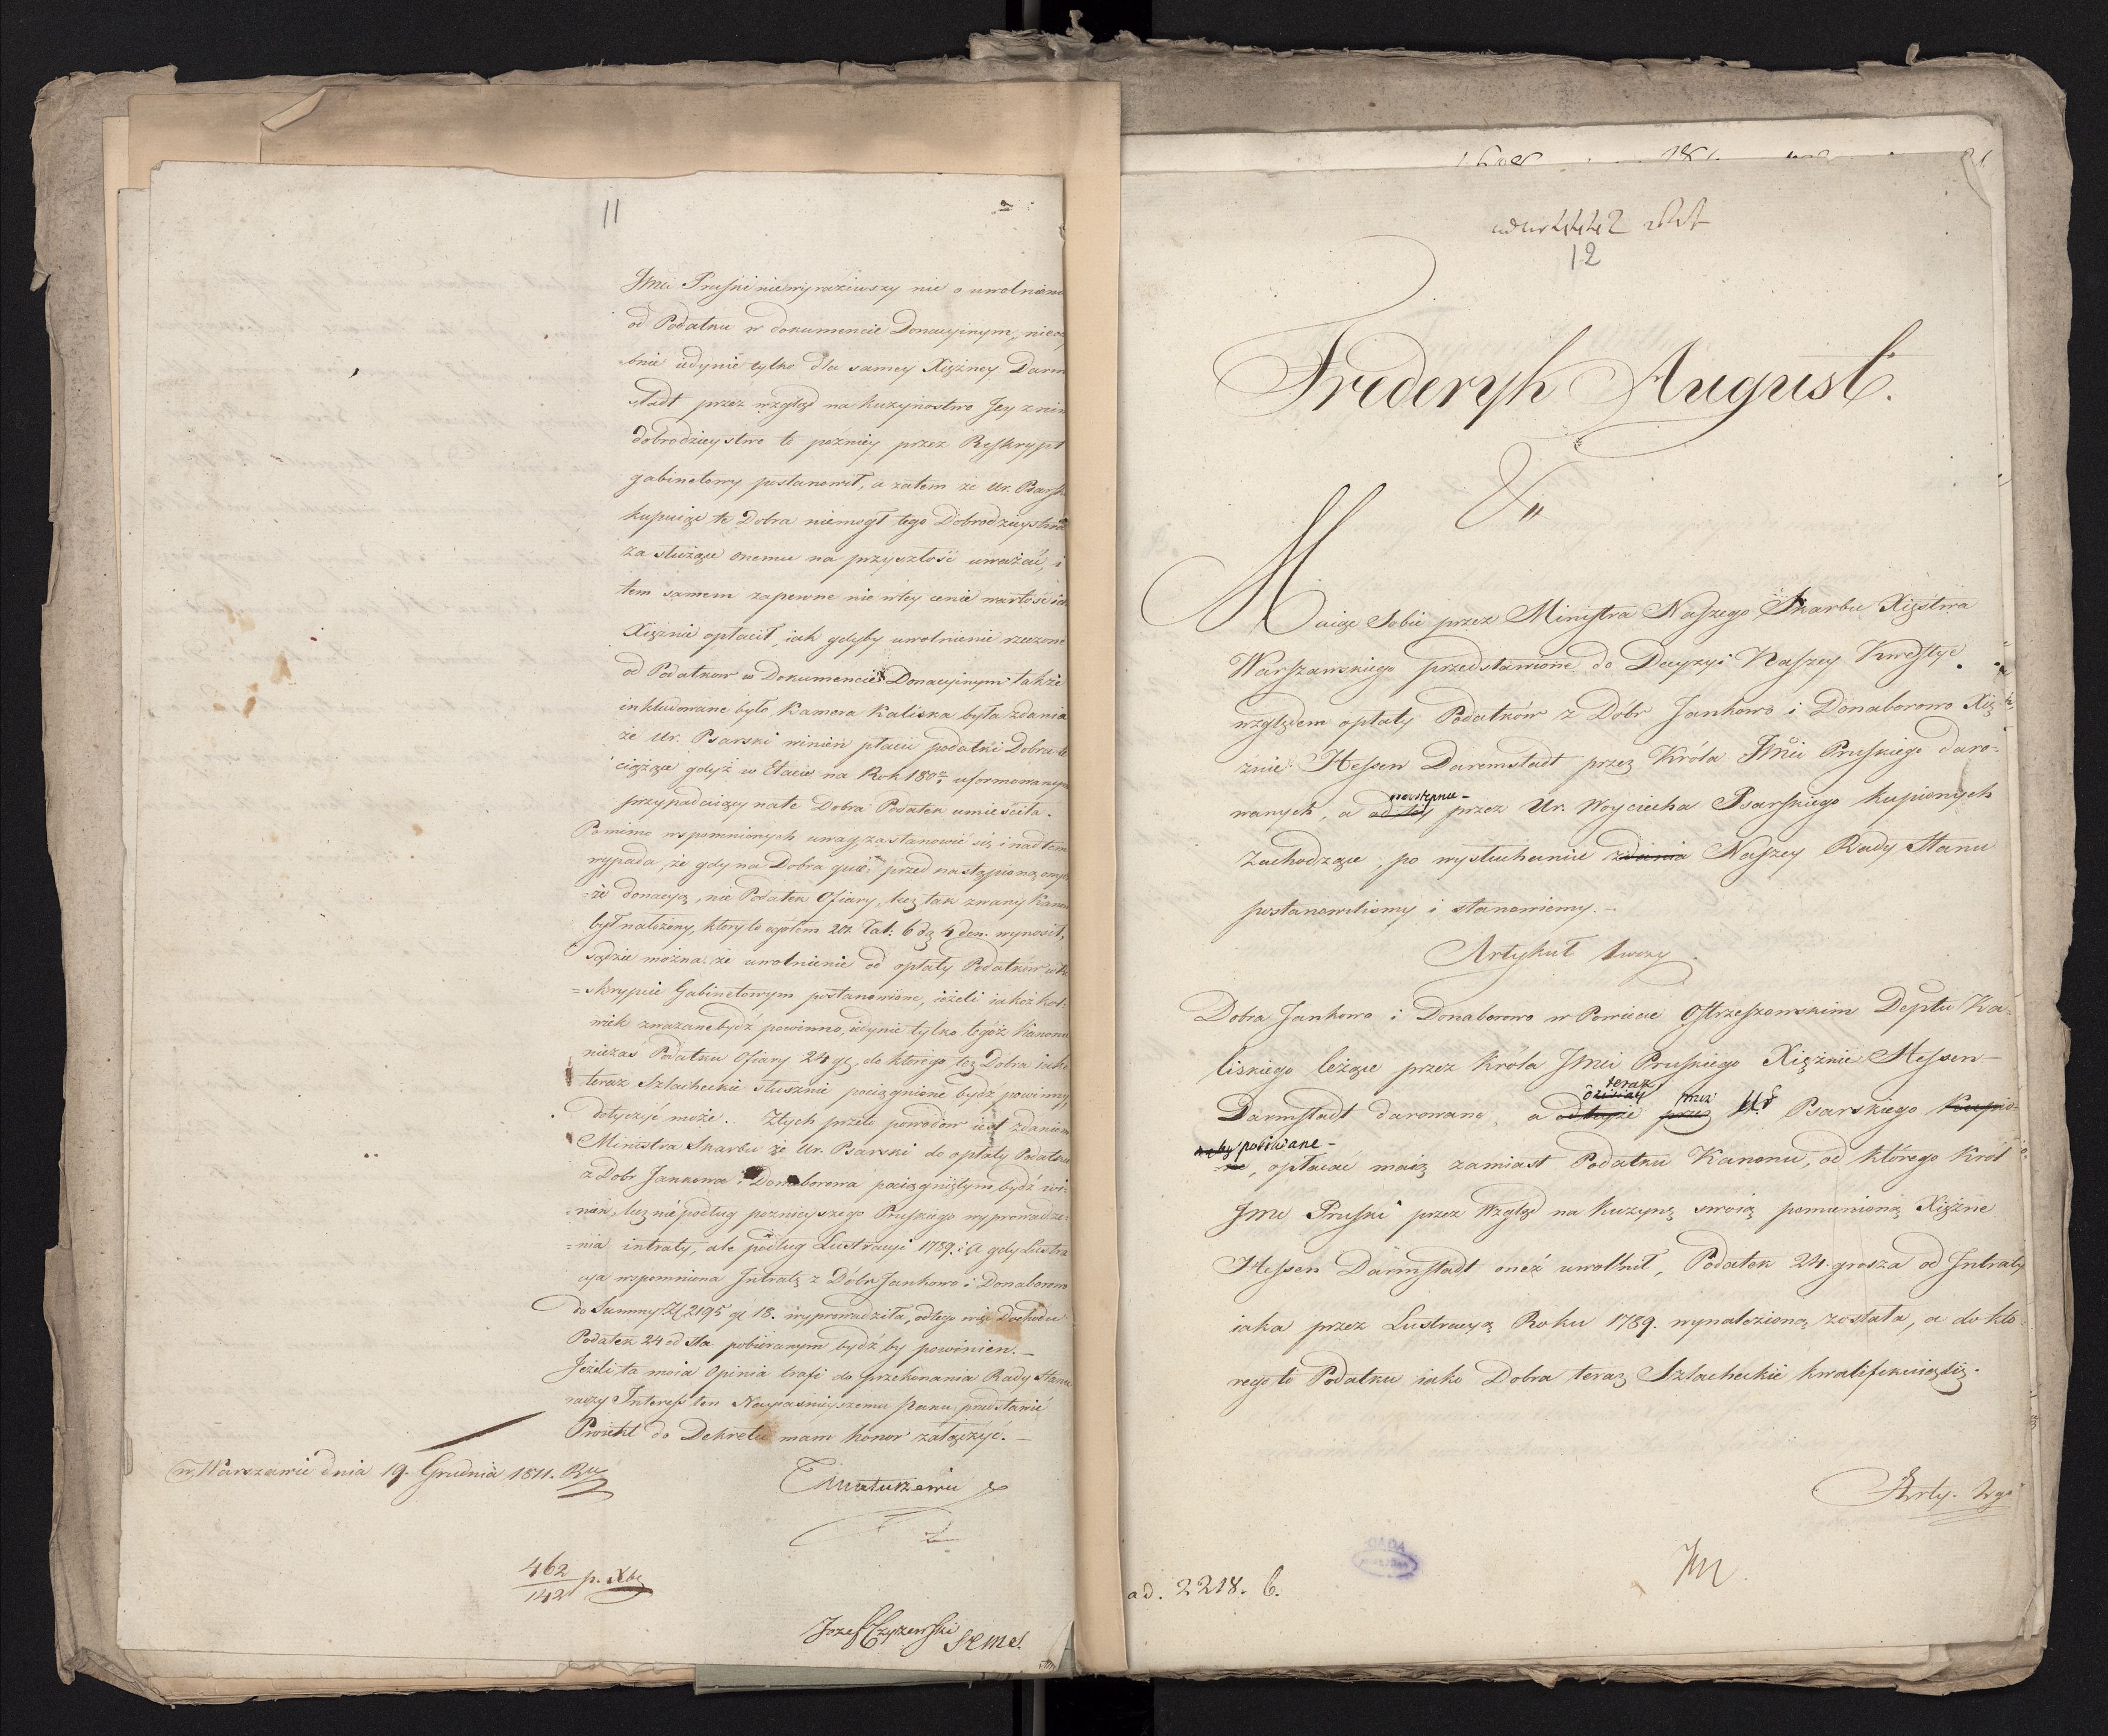 11
Jmci Pruski niewyraziwszy nic o uwolnieniu
od Podatku w dokumencie Donacyinym,
iedynie tylko dla samey Xiężney Darm
stadt przez wzgląd na kuzynostwo Jey z nim
dobrodzieystwo to pożniey przez Reskrypt
gabinetowy postanowił, a zatem że Ur. Psarski
kupuiąc te Dobra niemogł tego Dobrodzieystwa
za służące onemu na przyszłość uważać, i
tem samem zapewne nie w tey cenie wartość ich
Xiężnie opłacił, iak gdyby uwolnienie rzeczone
od Podatkow w Dokumencie Donacyinym także
inkludowane było Kamera Kaliska była zdania
że Ur. Psarski winien płacić podatki Dobra te
ciążące gdyż w Etacie na Rok 180 uformowanym
przypadaiący na te Dobra Podatek umieściła.
Pomimo wspomnionych uwag, zastanowić się i nad tem
wypada, że gdy na Dobra przed nastąpioną
donacyą, nie Podatek Ofiary, lecz tak zwany Kanon
był nałożony, ktory to ogółem 202. Tal: 6 dg 4 den. wynosił,
sądzić można, że uwolnienie od opłaty Podatkow w Re
=skrypcie Gabinetowym postanowione, ieżeli iakoż kol-
wiek zważane bydź powinno, iedynie tylko tegoż Kanonu
niezas Podatku Ofiary 24 gr. do którego też Dobra iako
teraz Szlacheckie słusznie pociągnione bydź powinny,
dotyczyć może. Z tych przeto powodow iest zdaniem
Ministra Skarbu że Ur. Psarski do opłaty Podatku
z Dobr Jankowa i Donaborowa pociągniętym bydź wi-
nien, lecz nie podług poznieyszego Pruskiego wyprowadze-
=nia intraty, ale podług Lustracyi 1789. i A gdy Lustra
cya wspomniona Intratę z Dóbr Jankowo i Donaborowo
do Summy Zł 2195 gr 18. wyprowadziła, od tego więc Dochodu
Podatek 24 od sta pobieranym bydź by powinien.—
Jeżeli ta moia Opinia trafi do przekonania Rady Stanu
raczy Interess ten Nayiaśnieyszemu Panu przedstawić
Proiekt do Dekretu mam honor załączyć.—
w Warszawie dnia 19. Grudnia 1811. Ru
TMatuszewic
462
142 p. Xbr
Jozef Czyzewski
12
Frederyk August.
Maiąc Sobie przez Ministra Naszego Skarbu Xięstwa
Warszawskiego przedstawione do Decyzyi Naszey Kwestye
względem opłaty Podatków z Dobr Jankowo i Donaborowo Xię
żnie Hessen Darmstadt przez Króla Jmci Pruskiego daro-
następnie-
wanych, a od tey przez Ur. Woyciecha Psarskiego kupionych
zachodzące, po wysłuchaniu zdania Naszey Rady Stanu
postanowilismy i stanowiemy.-
Artykuł 1wszy
Dobra Jankowo i Donaborowo w Powiecie Ostrzeszowskim Deptu Ka-
liskiego leżące przez Króla Jmci Pruskiego Xiężnie Hessen-
teraz
dzisiay przez
Darmstadt darowane, a od teyże przez Ur Psarskiego kupio
posiadane-
-ne, opłacać maią zamiast Podatku Kanonu, od którego Krol
Jmci Pruski przez Wzgląd na kuzynę swoią pomienioną Xiężne
Hessen Darmstadt oneż uwolnił, Podatek 24. grosza od Intraty
iaka przez Lustracyą Roku 1789. wynalezioną została, a do kto
rego to Podatku iako Dobra teraz Szlacheckie kwalifikuią się.
Arty. 2gi
ad. 2218. b.